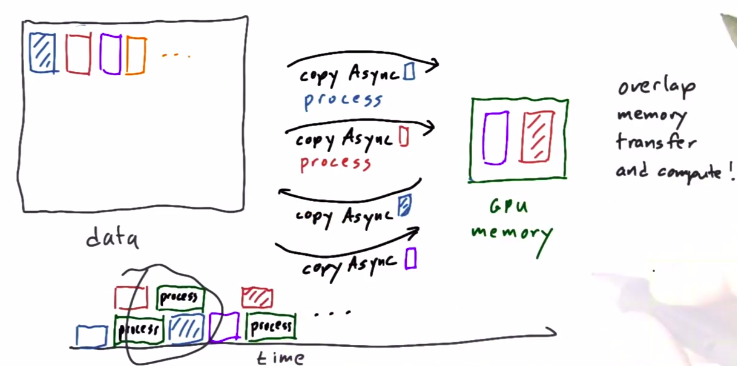 ...
data
copy Async
process
copy Async
process
copy Async
copy Async
GPU
memory
overlap
memory
transfer
and compute!
process
process
process
...
time